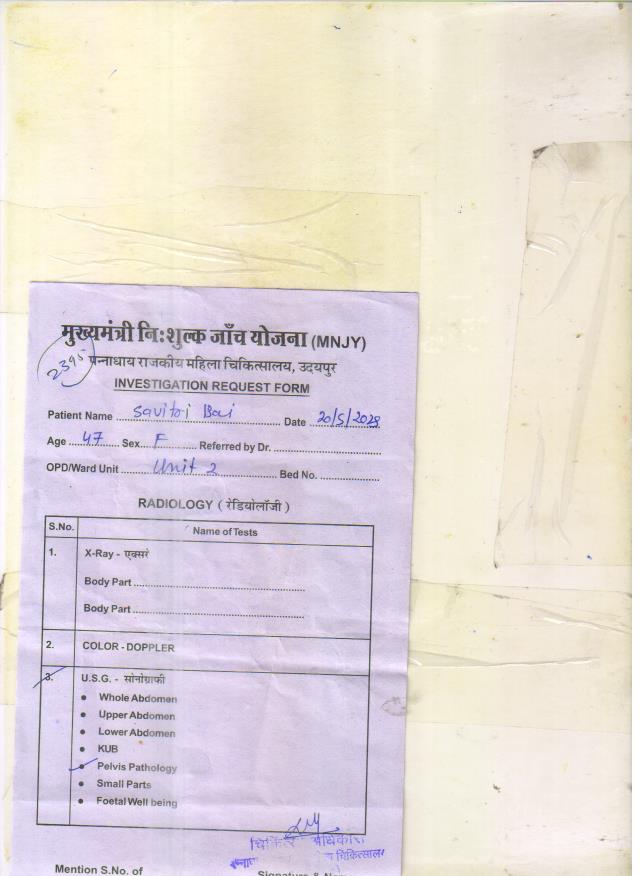 मुख्यमंत्री नि:शुल्क जाँच योजना (MNJY)
2395
पन्नाधाय राजकीय महिला चिकित्सालय, उदयपुर
INVESTIGATION REQUEST FORM
Patient Name Savitri Bai Date 20/5/2028
Age 47 Sex F Referred by Dr.
OPD/Ward Unit Unit 2 Bed No.
RADIOLOGY (रेडियोलॉजी)
S.No. Name of Tests
1. X-Ray - एक्सरे
Body Part
Body Part
2. COLOR - DOPPLER
3. U.S.G. - सोनोग्राफी
• Whole Abdomen
• Upper Abdomen
• Lower Abdomen
• KUB
• Pelvis Pathology
• Small Parts
• Foetal Well being
चिकित्सालय
Mention S.No. of Signature &